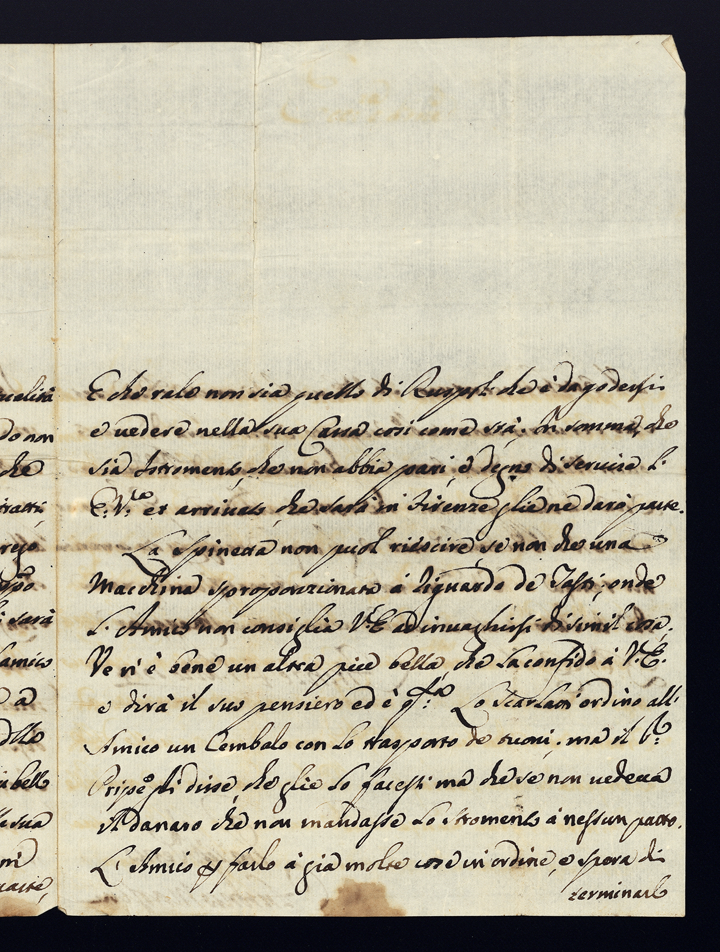 E che talo non sia quello di Ruspoli che è da godersi
e vedere nella sua Cassa così come stà. In somma, che
sia Istromento, che non abbia pari, e degno di servire l'
E.V.ra et arrivato, che sarà in Firenze glie ne darò parte.
La Spinetta non puol riuscire se non che una
Macchina sproporzionata à riguardo de Tasti; onde
L'Amico non consiglia V.E. ad invaghirsi di simil cosa.
Ve n'è bene un altra più bella, che la confido à V.E.
e dirà il suo pensiero ed è q.sta Lo Scarlatti ordinò all'
Amico un Cembalo con lo trasporto de tuoni; ma il
Pripe gli disse, che glie lo facesse ma che se non vedeva
il danaro che non mandasse lo stromento à nessun patto.
L'Amico p farlo à già molte cose in ordine, e spera di
terminarlo
uelità
do non
che
tratti,
sarà
amico
a
dello
bello
sua